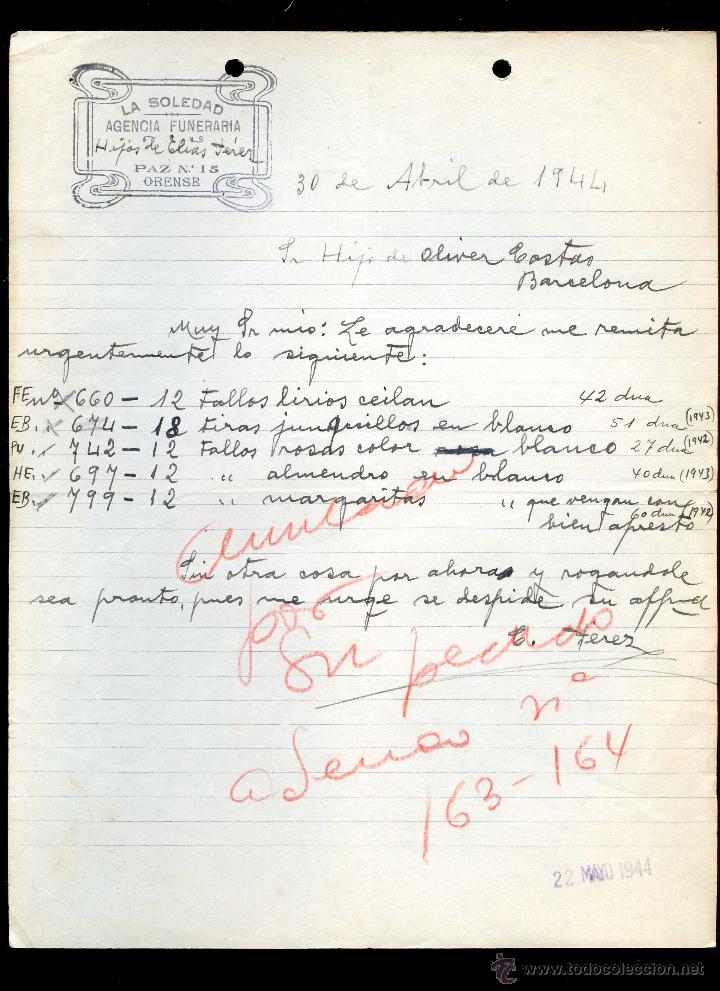 LA SOLEDAD
AGENCIA FUNERARIA
Hijos de Elías Férez
PAZ N.º 15
ORENSE
30 de Abril de 1944
Sr Hijo de Oliver Costas
Barcelona
Muy Sr mio: Le agradeceré me remita
urgentemente lo siguiente:
FE nº 660 - 12 Fallos lirios ceilan 42 dna
EB. " 674 - 18 tiras junquillos en blanco 51 dna (1943)
PU. " 742 - 12 Fallos rosas color blanco 27 dna (1942)
HE. " 697 - 12 " almendro en blanco 40 dna (1943)
EB. " 799 - 12 " margaritas " que vengan con
60 dna (1942)
bien apresto
Sin otra cosa por ahora y rogandole
sea pronto, pues me urge se despide su
E. Férez
por
su
nº
163-164
22 MAYO 1944
www.todocoleccion.net